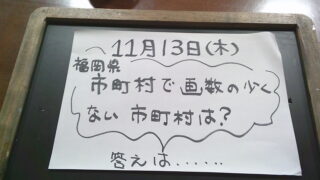 11月13日(木)
福岡県
市町村で画数の少く
ない市町村は?
答えは‥‥‥